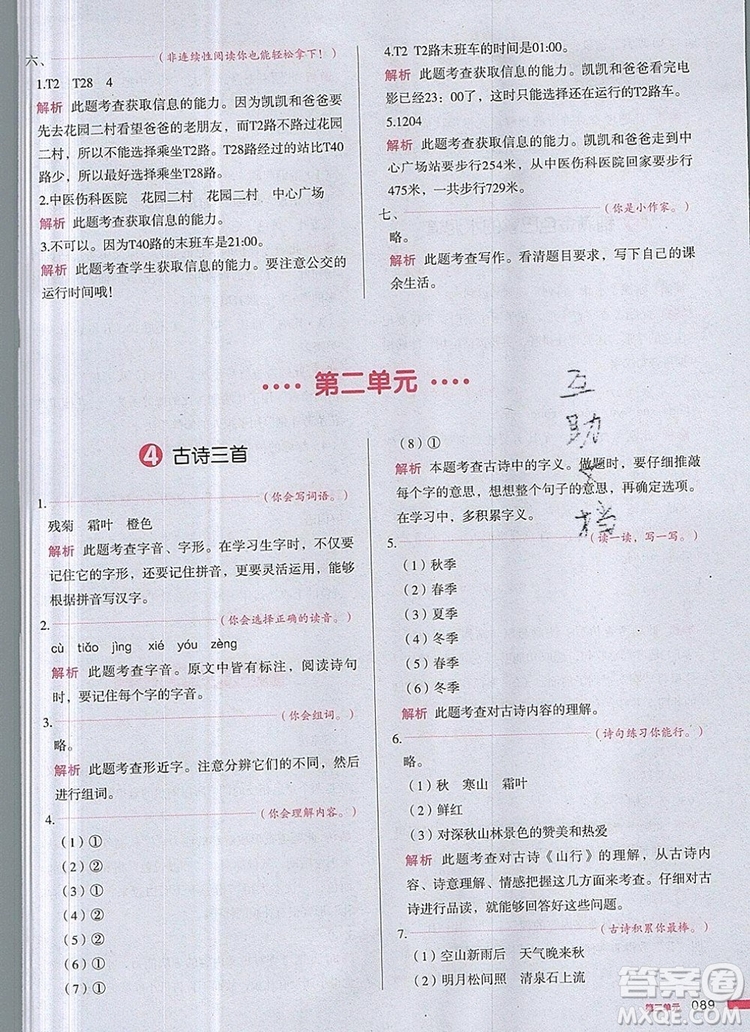 六、(非连续性阅读你也能轻松拿下!)
1.T2 T28 4
解析 此题考查获取信息的能力。因为凯凯和爸爸要
先去花园二村看望爸爸的老朋友,而T2路不到花园
二村,所以不能选择乘坐T2路。T28路经过的站比T40
路少,所以选择T28路。
2.中医伤科医院 花园二村 花园二村 中心广场
解析 此题考查获取信息的能力。
3.不可以。因为T40路的末班车是21:00。
解析 此题考查学生获取信息的能力。要注意公交的
运行时间哦!
4.T2 T2路末班车的时间是01:00。
解析 此题考查获取信息的能力。凯凯和爸爸看完电
影已经23:00了,这时只能选择还在运行的T2路车。
5.1204
解析 此题考查获取信息的能力。凯凯和爸爸走到中
心广场站要步行254米,从中医伤科医院回家要步行
475米,一共要步行729米。
七、(你是小作家。)
略。
解析 此题考查写作。看清题目要求,写下自己的课
余生活。
第二单元
4 古诗三首
1.(你会写词语。)
残菊 霜叶 橙色
解析 此题考查字音、字形。在学习生字时,不仅要
记住它的字形,还要记住拼音,更要灵活运用,能够
根据拼音写汉字。
2.(你会选择正确的读音。)
cù tiǎo jìng xié yóu zèng
解析 此题考查字音。原文中皆有标注,阅读诗句
时,要记住每个字的字音。
3.(你会组词。)
略。
解析 此题考查形近字。注意分辨它们的不同,然后
进行组词。
4.(你会理解内容。)
(1)①
(2)①
(3)①
(4)①
(5)①
(6)①
(7)①
(8)①
解析 本题考查古诗中的字义。做题时,要仔细推敲
每个字的意思,想想整个句子的意思,再确定选项。
在学习中,多积累字义。
5.(读一读,写一写。)
(1)秋季
(2)春季
(3)夏季
(4)冬季
(5)春季
(6)冬季
解析 此题考查对古诗内容的理解。
6.(诗句练习你能行。)
略。
(1)秋 寒山 霜叶
(2)鲜红
(3)对深秋山林景色的赞美和热爱
解析 此题考查对古诗《山行》的理解,从古诗内
容、诗意理解、情感把握这几方面来考查。仔细对古
诗进行品读,就能够回答好这些问题。
7.(古诗积累你最棒。)
(1)空山新雨后 天气晚来秋
(2)明月松间照 清泉石上流
互
助
文
档
第二单元 089
答案圈
MXQE.COM